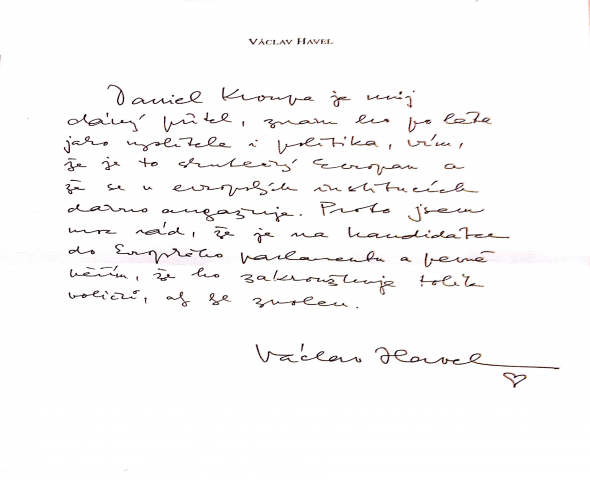 VÁCLAV HAVEL
Daniel Kroupa je můj
dávný přítel, znám ho po léta
jako myslitele i politika, vím,
že je to skutečný Evropan a
že se v evropských institucích
dávno angažuje. Proto jsem
moc rád, že je na kandidátce
do Evropského parlamentu a pevně
věřím, že ho zakroužkuje tolik
voličů, až je zvolen.
Václav Havel